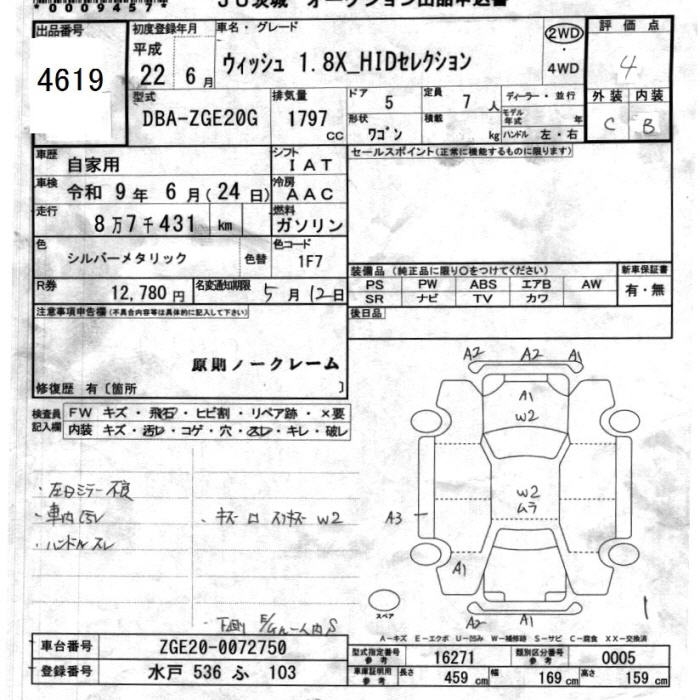 *0009457*
JU茨城 オークション出品申込書
出品番号
4619
初度登録年月
平成
22 6月
車名・グレード
ウィッシュ 1.8X_HIDセレクション
2WD
・
4WD
評価点
4
外装 内装
C B
型式
DBA-ZGE20G
排気量
1797
cc
ドア 5
定員 7 人
ディーラー・並行
形状 ワゴン
積載 kg
モデル年式 年
ハンドル 左・右
車歴
自家用
シフト
IAT
セールスポイント(正常に機能するものに限ります)
車検
令和 9年 6月(24日)
冷房
AAC
走行
8万7千431 km
燃料
ガソリン
色
シルバーメタリック
色替
色コード
1F7
装備品 (純正品に限り○をつけてください)
新車保証書
PS PW ABS エアB AW
SR ナビ TV カワ
有・無
R券
12,780円
名変通知期限
5月12日
後日品
注意事項申告欄(不具合内容等は具体的に記入して下さい)
原則ノークレーム
修復歴 有〔箇所 〕
検査員記入欄
FW キズ・飛石・ヒビ割・リペア跡・×要
内装 キズ・汚レ・コゲ・穴・スレ・キレ・破レ
A2 A2 A1
A1
W2
W2
ムラ
A3
A1
スペア
A2 A1
・左ドアミラー不良
・車内ヨゴレ
・ハンドルスレ
W2
A-キズ E-エクボ U-凹み W-補修跡 S-サビ C-腐食 XX-交換済
車台番号
ZGE20-0072750
登録番号
水戸 536 ふ 103
型式指定番号
参考
16271
類別区分番号
参考
0005
車庫証明用
参考
長さ 459 cm
幅 169 cm
高さ 159 cm